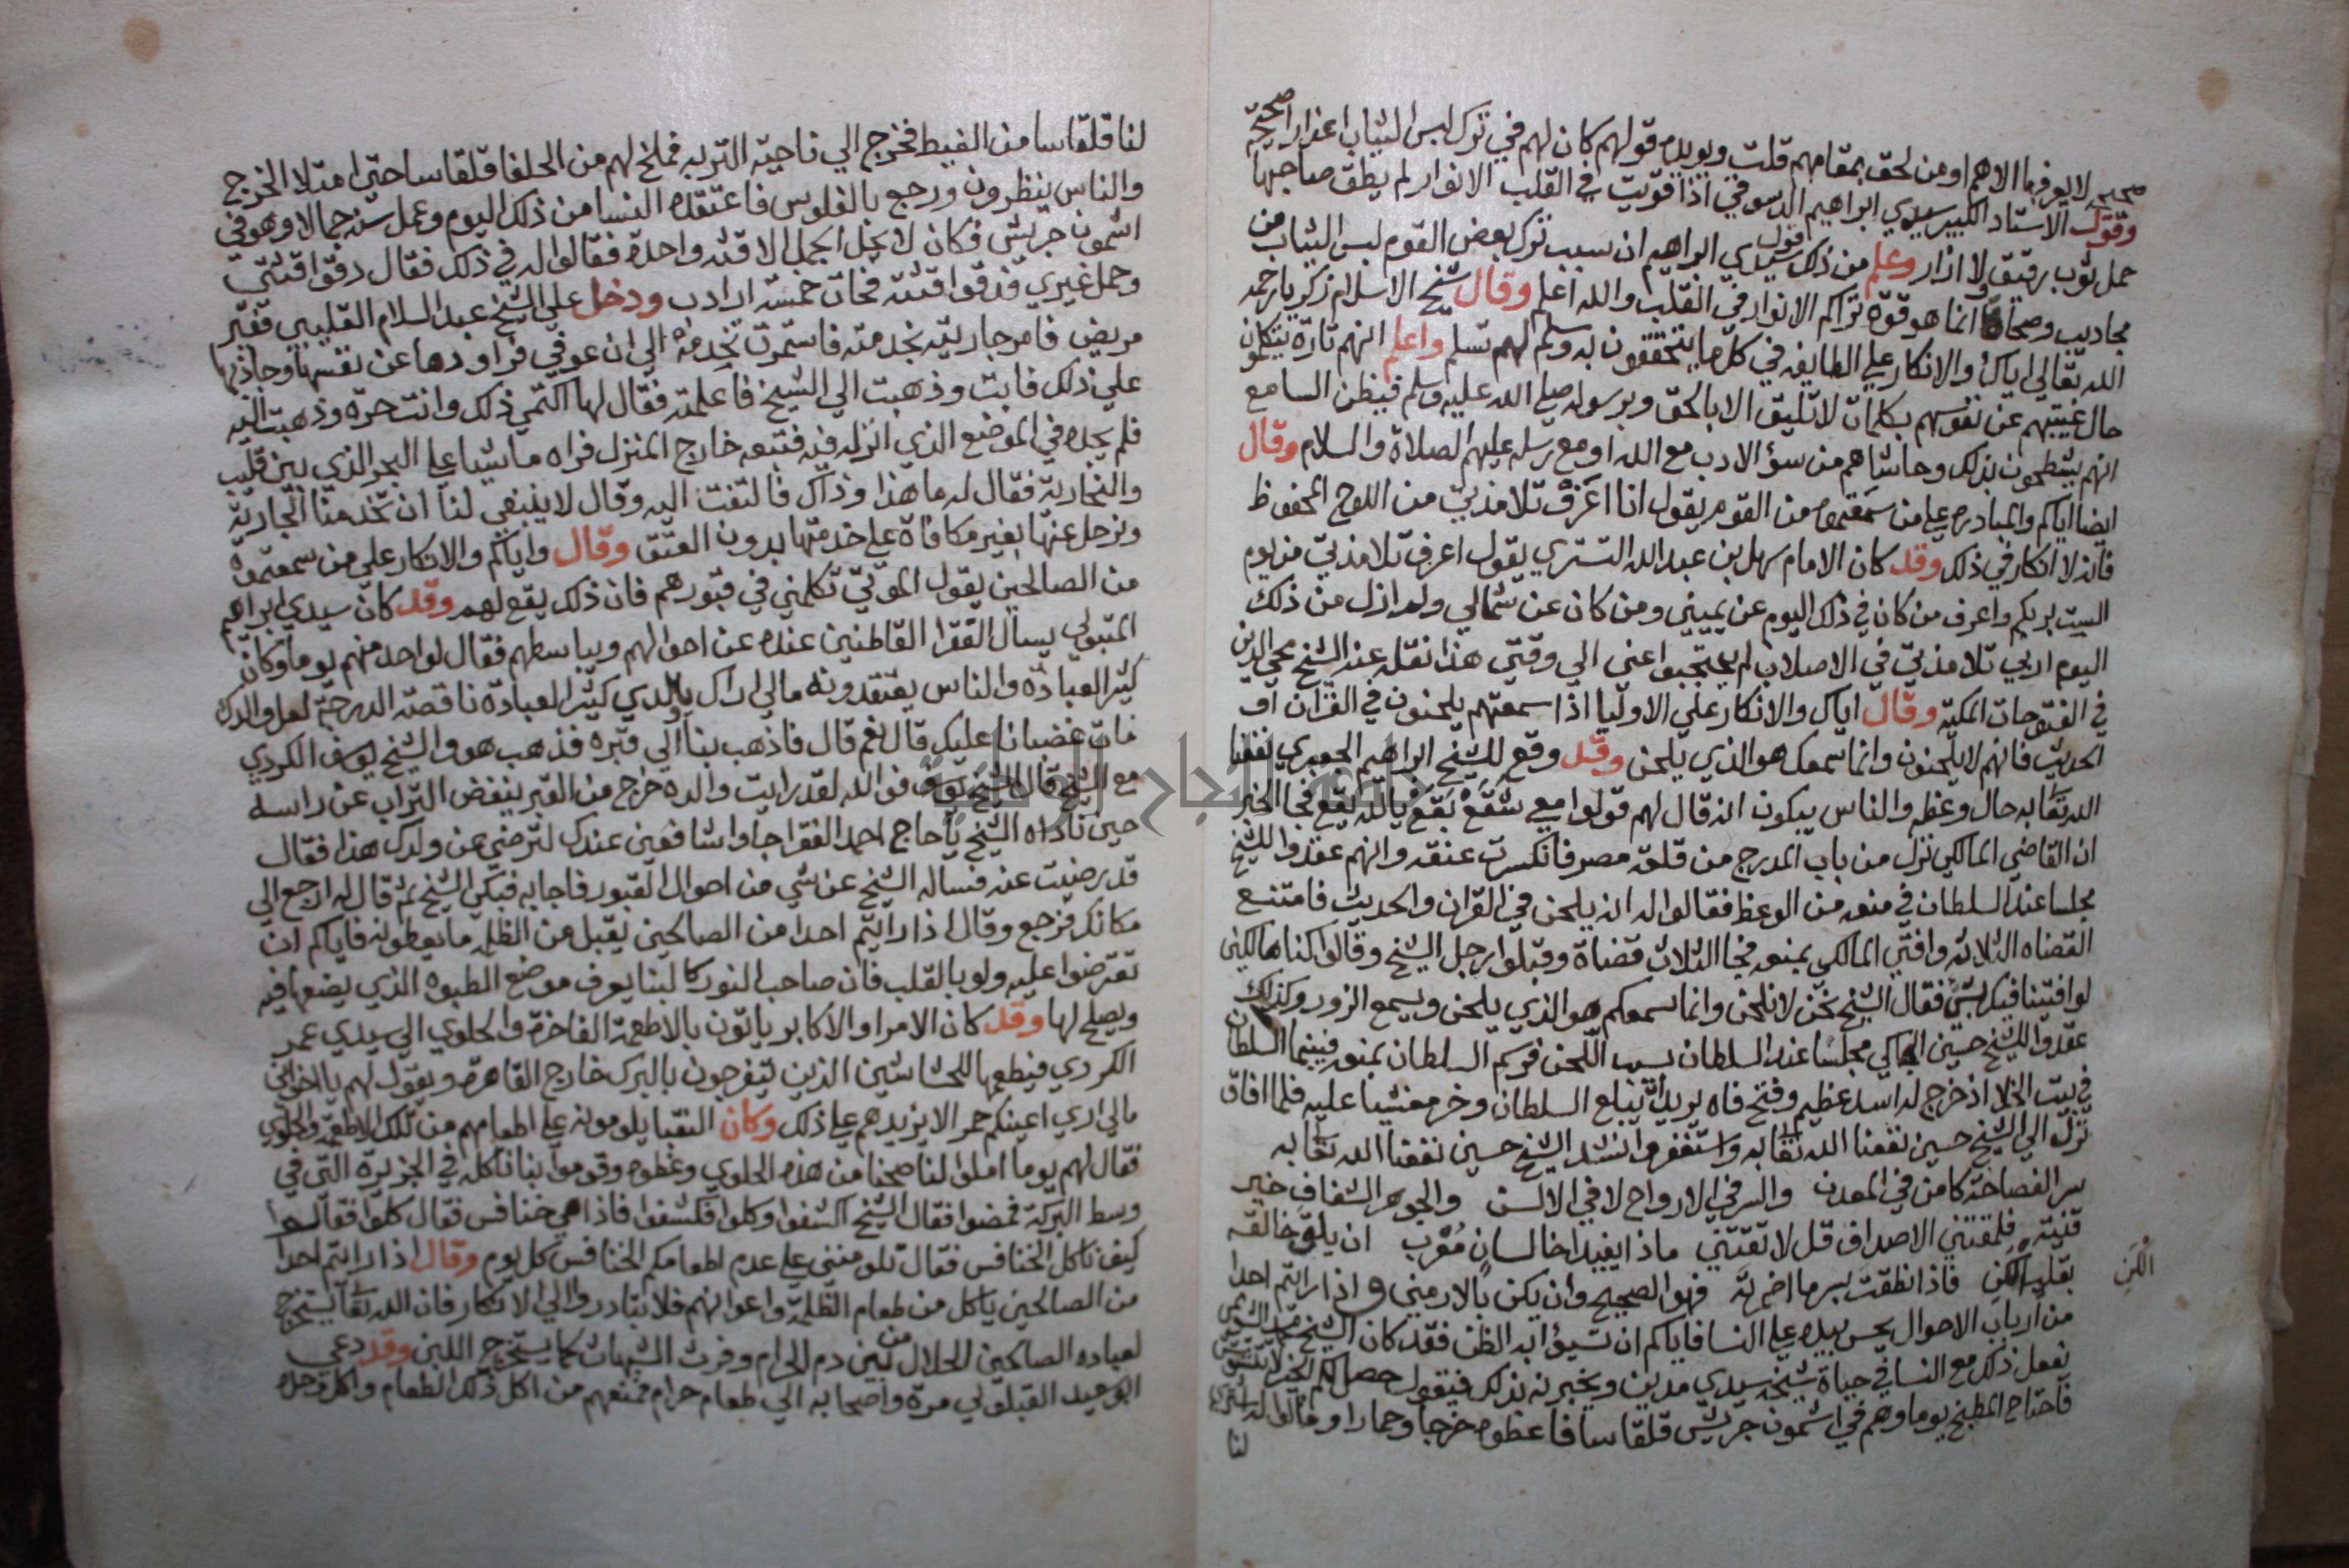 لا يعرفها الا هم او من لحق بمقامهم قلت ويويده قولهم كان لهم في ترك لبس الثياب اعذارا صحيحة
وقول الاستاد الكبير سيدي ابراهيم الدسوقي اذا قويت في القلب الانوار لم يطق صاحبها
حمل ثوب رقيق ولا ازار وعلم من ذلك قول سيدي ابراهيم ان سبب ترك بعض القوم لبس الثياب من
مجاذيب وصحاة انما هو قوة تراكم الانوار في القلب والله اعلم وقال شيخ الاسلام زكريا رحمه
الله تعالي اياك والانكار علي الطايفه في كل ما يتحققون به وسلم لهم تسلم واعلم انهم تارة يتكلمون
حال غيبتهم عن نفوسهم بكلمات لا تليق الا بالحق وبرسوله صلي الله عليه وسلم فيظن السامع
انهم يشطحون بذلك وحاشاهم من سؤ الادب مع الله او مع رسله عليهم الصلاة والسلام وقال
ايضا اياكم والمبادره علي من سمعتموه من القوم يقول انا اعرف تلامذتي من اللوح المحفوظ
فانه لا انكار في ذلك وقد كان الامام سهل بن عبد الله التستري يقول اعرف تلامذتي من يوم
الست بربكم واعرف من كان في ذلك اليوم عن يميني ومن كان عن شمالي ولم ازل من ذلك
اليوم اربي تلامذتي في الاصلاب لم يحتجبوا عني الي وقتي هذا نقله عنه الشيخ محيي الدين
في الفتوحات المكية وقال اياك والانكار علي الاوليا اذا سمعتهم يلحنون في القران او
الحديث فانهم لا يلحنون وانما سمعك هو الذي يلحن وقد وقع للشيخ ابراهيم الجعبري نفعنا
الله تعا به حال وعظه والناس يبكون انه قال لهم قولوا معي شقع بقع يا لله يقع فجا الخبر
ان القاضي المالكي نزل من باب المدرج من قلعة مصر فانكسرت عنقه وانهم عقدوا للشيخ
مجلسا عند السلطان في منعه من الوعظ فقالوا له انه يلحن في القران والحديث فامتنع
القضاه الثلاثه وافتي المالكي بمنعه فجا الثلاث قضاة وقبلوا رجل الشيخ وقالوا كنا هالكين
لو افتينا فيك بشي فقال الشيخ نحن لا نلحن وانما سمعكم هو الذي يلحن ويسمع الزور وكذلك
عقدوا للشيخ حسين الجاكي مجلسا عند السلطان بسبب اللحن فرسم السلطان بمنعه فبينما السلطان
في بيت الخلا اذ خرج له اسد عظيم وفتح فاه يريد ان يبلع السلطان وخر مغشيا عليه فلما افاق
نزل الي الشيخ حسين نفعنا الله تعا به واستغفر وانشد الشيخ حسين نفعنا الله تعا به
سر الفصاحة كامن في المعدن والسر في الارواح لا في الالسن والجوهر الشفاف خير
قنية فلمقتني الاصداف قل لا تقتني ماذا يفيد اخا لسان معرب ان يلق خالقه
بقلب الكن فاذا نطقت بسر ما اضمرته فهو الصحيح وان يكن بالارمني واذا رايتم احدا
من ارباب الاحوال يحسس بيده علي النسا فاياكم ان تسيؤا به الظن فقد كان الشيخ
يفعل ذلك مع النسا في حياة شيخه سيدي مدين ويخبرنه بذلك فيقول حصل لكم الخير
فاحتاج المطبخ يوما وهم في اشمون جريش قلقاسا فاعطوه خرجا وحمارا وقالوا له اشتري
لنا
الكن
لنا قلقاسا من الغيط فخرج الي ناحية التربه فملخ لهم من الحلفا قلقاسا حتي امتلا الخرج
والناس ينظرون ورجع بالفلوس فاعتقده النسا من ذلك اليوم وعمل سنة جمالا وهو في
اشمون جريش فكان لا يحمل الجمل الا قته واحدة فقالوا له في ذلك فقال دقوا قتتي
وحمل غيري فدقوا قتته فجات خمسة ارادب ودخل علي الشيخ عبد السلام القليبي فقير
مريض فامر جاريته بخدمته فاستمرت تخدمه الي ان عوفي فراودها عن نفسها وجاذبها
علي ذلك فابت وذهبت الي الشيخ فاعلمته فقال لها اكتمي ذلك وانت حرة وذهبت اليه
فلم يجده في الموضع الذي انزله فيه فتبعه خارج المنزل فراه ماشيا علي البحر الذي بين قليب
والنحارية فقال له ما هذا وذاك فالتفت اليه وقال لا ينبغي لنا ان تخدمنا الجارية
ونرحل عنها بغير مكافاة علي خدمتها بدون العتق وقال واياكم والانكار علي من سمعتموه
من الصالحين يقول الموتي تكلمني في قبورهم فان ذلك يقع لهم وقد كان سيدي ابراهيم
المتبولي يسال الفقرا القاطنين عنده عن احوالهم ويباسطهم فقال لواحد منهم يوما وكان
كثير العبادة والناس يعتقدونه مالي اراك يا ولدي كثير العبادة ناقصة الدرجة لعل والدك
مات غضبانا عليك قال نعم قال فاذهب بنا الي قبره فذهب هو والشيخ يوسف الكردي
مع الشيخ قال الشيخ يوسف فوالله لقد رايت والده خرج من القبر ينفض التراب عن راسه
حين ناداه الشيخ يا حاج احمد الفقرا جاوا شافعين عندك لترضي عن ولدك هذا فقال
قد رضيت عنه فساله الشيخ عن شي من احوال القبور فاجابه فبكي الشيخ ثم قال له ارجع الي
مكانك فرجع وقال اذا رايتم احدا من الصالحين يقبل من الظلمه ما يعطونه فاياكم ان
تعترضوا عليه ولو بالقلب فان صاحب النور كالبنا يعرف موضع الطوبه الذي يضعها فيه
ويصلح لها وقد كان الامرا والاكابر ياتون بالاطعمة الفاخرة والحلوي الي سيدي عمر
الكردي فيطعمها للحشاشين الذين يتفرجون بالبرك خارج القاهرة ويقول لهم يا اخواني
مالي اري اعينكم حمر الا يزيدهم علي ذلك وكان النقبا يلومونه علي اطعامهم من تلك الاطعمة والحلوي
فقال لهم يوما املوا لنا صحنا من هذه الحلوي وغطوه وقوموا بنا ناكله في الجزيرة التي في
وسط البركة فمضوا فقال الشيخ اكشفوا وكلوا فكشفوا فاذا هي خنافس فقال كلوا فقالوا
كيف ناكل الخنافس فقال تلومنني علي عدم اطعامكم الخنافس كل يوم وقال اذا رايتم احدا
من الصالحين ياكل من طعام الظلمة واعوانهم فلا تبادروا الي الانكار فان الله تعا يستخرج
لعباده الصالحين الحلال من بين دم الحرام وفرث الشبهات كما يستخرج اللبن وقد دعي
ابو عبد القيلوني مرة واصحابه الي طعام حرام فمنعهم من اكل ذلك الطعام واكله وحده